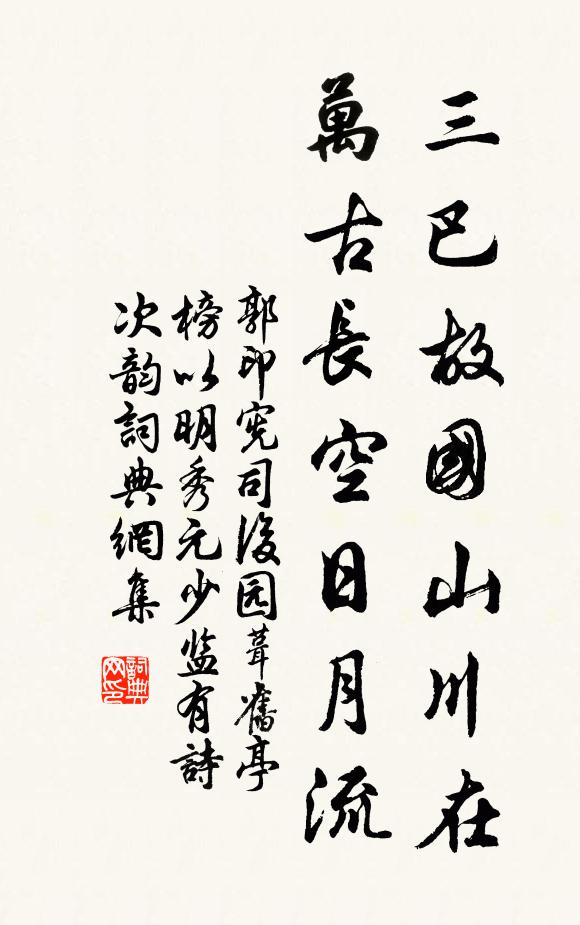 三巴故國山川在
萬古長空日月流
郭印宪司後园葺舊亭
榜以明秀元少监有詩
次韵詞典網集
詞典网印